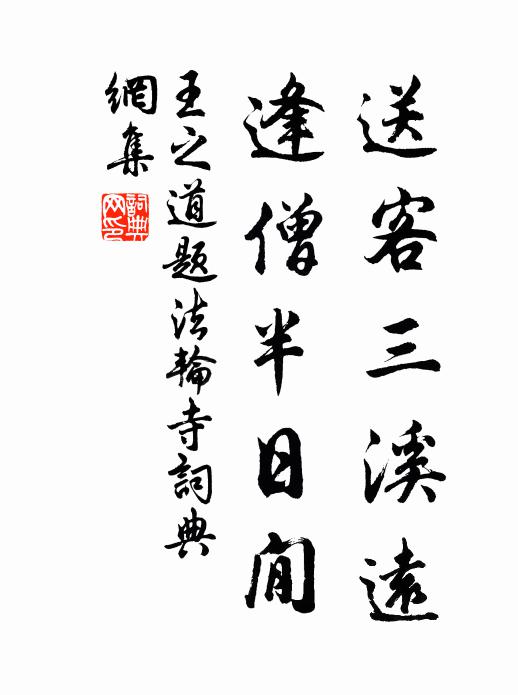 送客三溪遠
逢僧半日閒
王之道題法輪寺詞典
網集
詞典网印